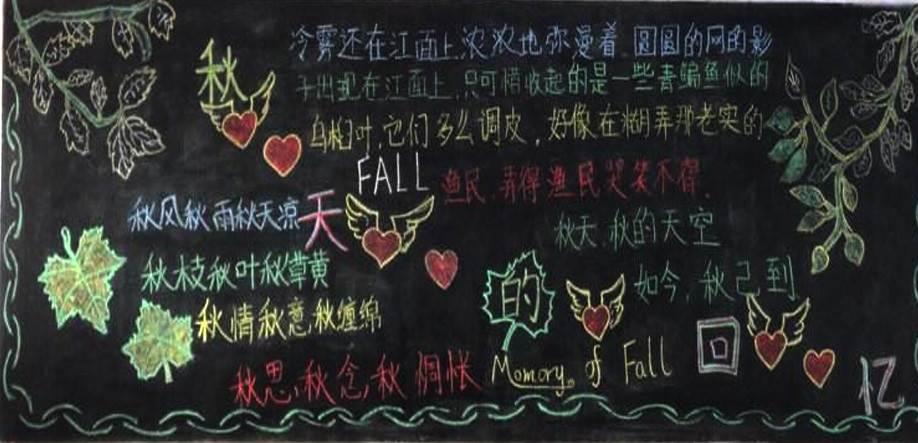 秋
冷雾还在江面上,浓浓地弥漫着 圆圆的网的影
子出现在江面上,只可惜收起的是一些青鳊鱼似的
乌桕叶,它们多么调皮,好像在糊弄那老实的
FALL
渔民,弄得渔民哭笑不得.
秋风秋雨秋天凉
天
秋天,秋的天空
秋枝秋叶秋草黄
的
如今,秋已到
秋情秋意秋缠绵
回
秋思,秋念,秋惆怅
Momory of Fall
忆